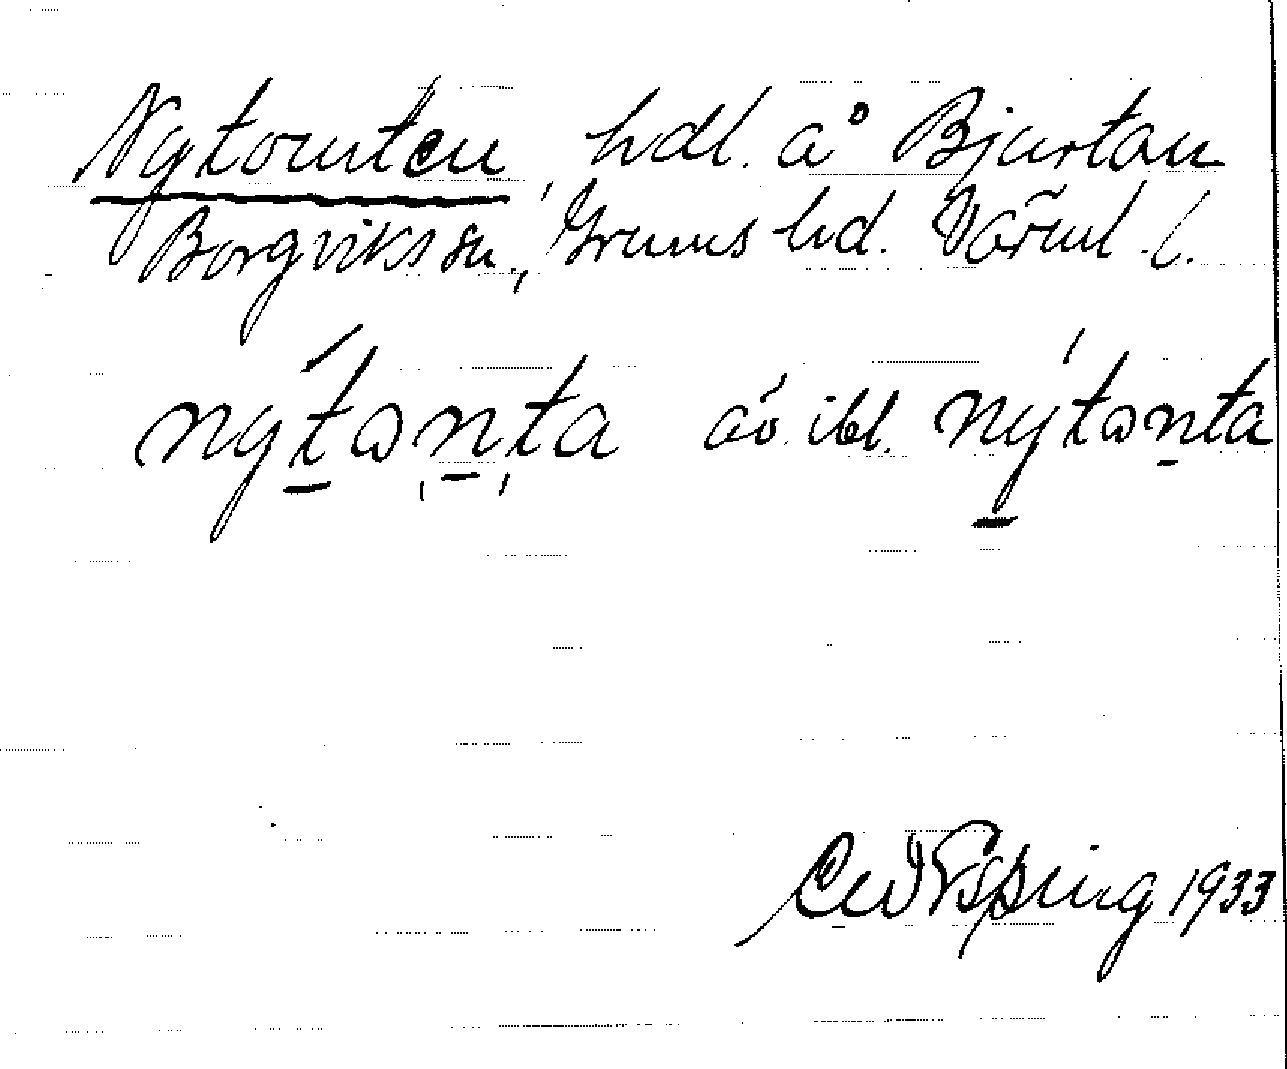 Nytomten, hdl. å Bjurtan
Borgviks sn., Grums hd. Värml. l.
nýtωnta äv. ibl. nýtωnta
1933